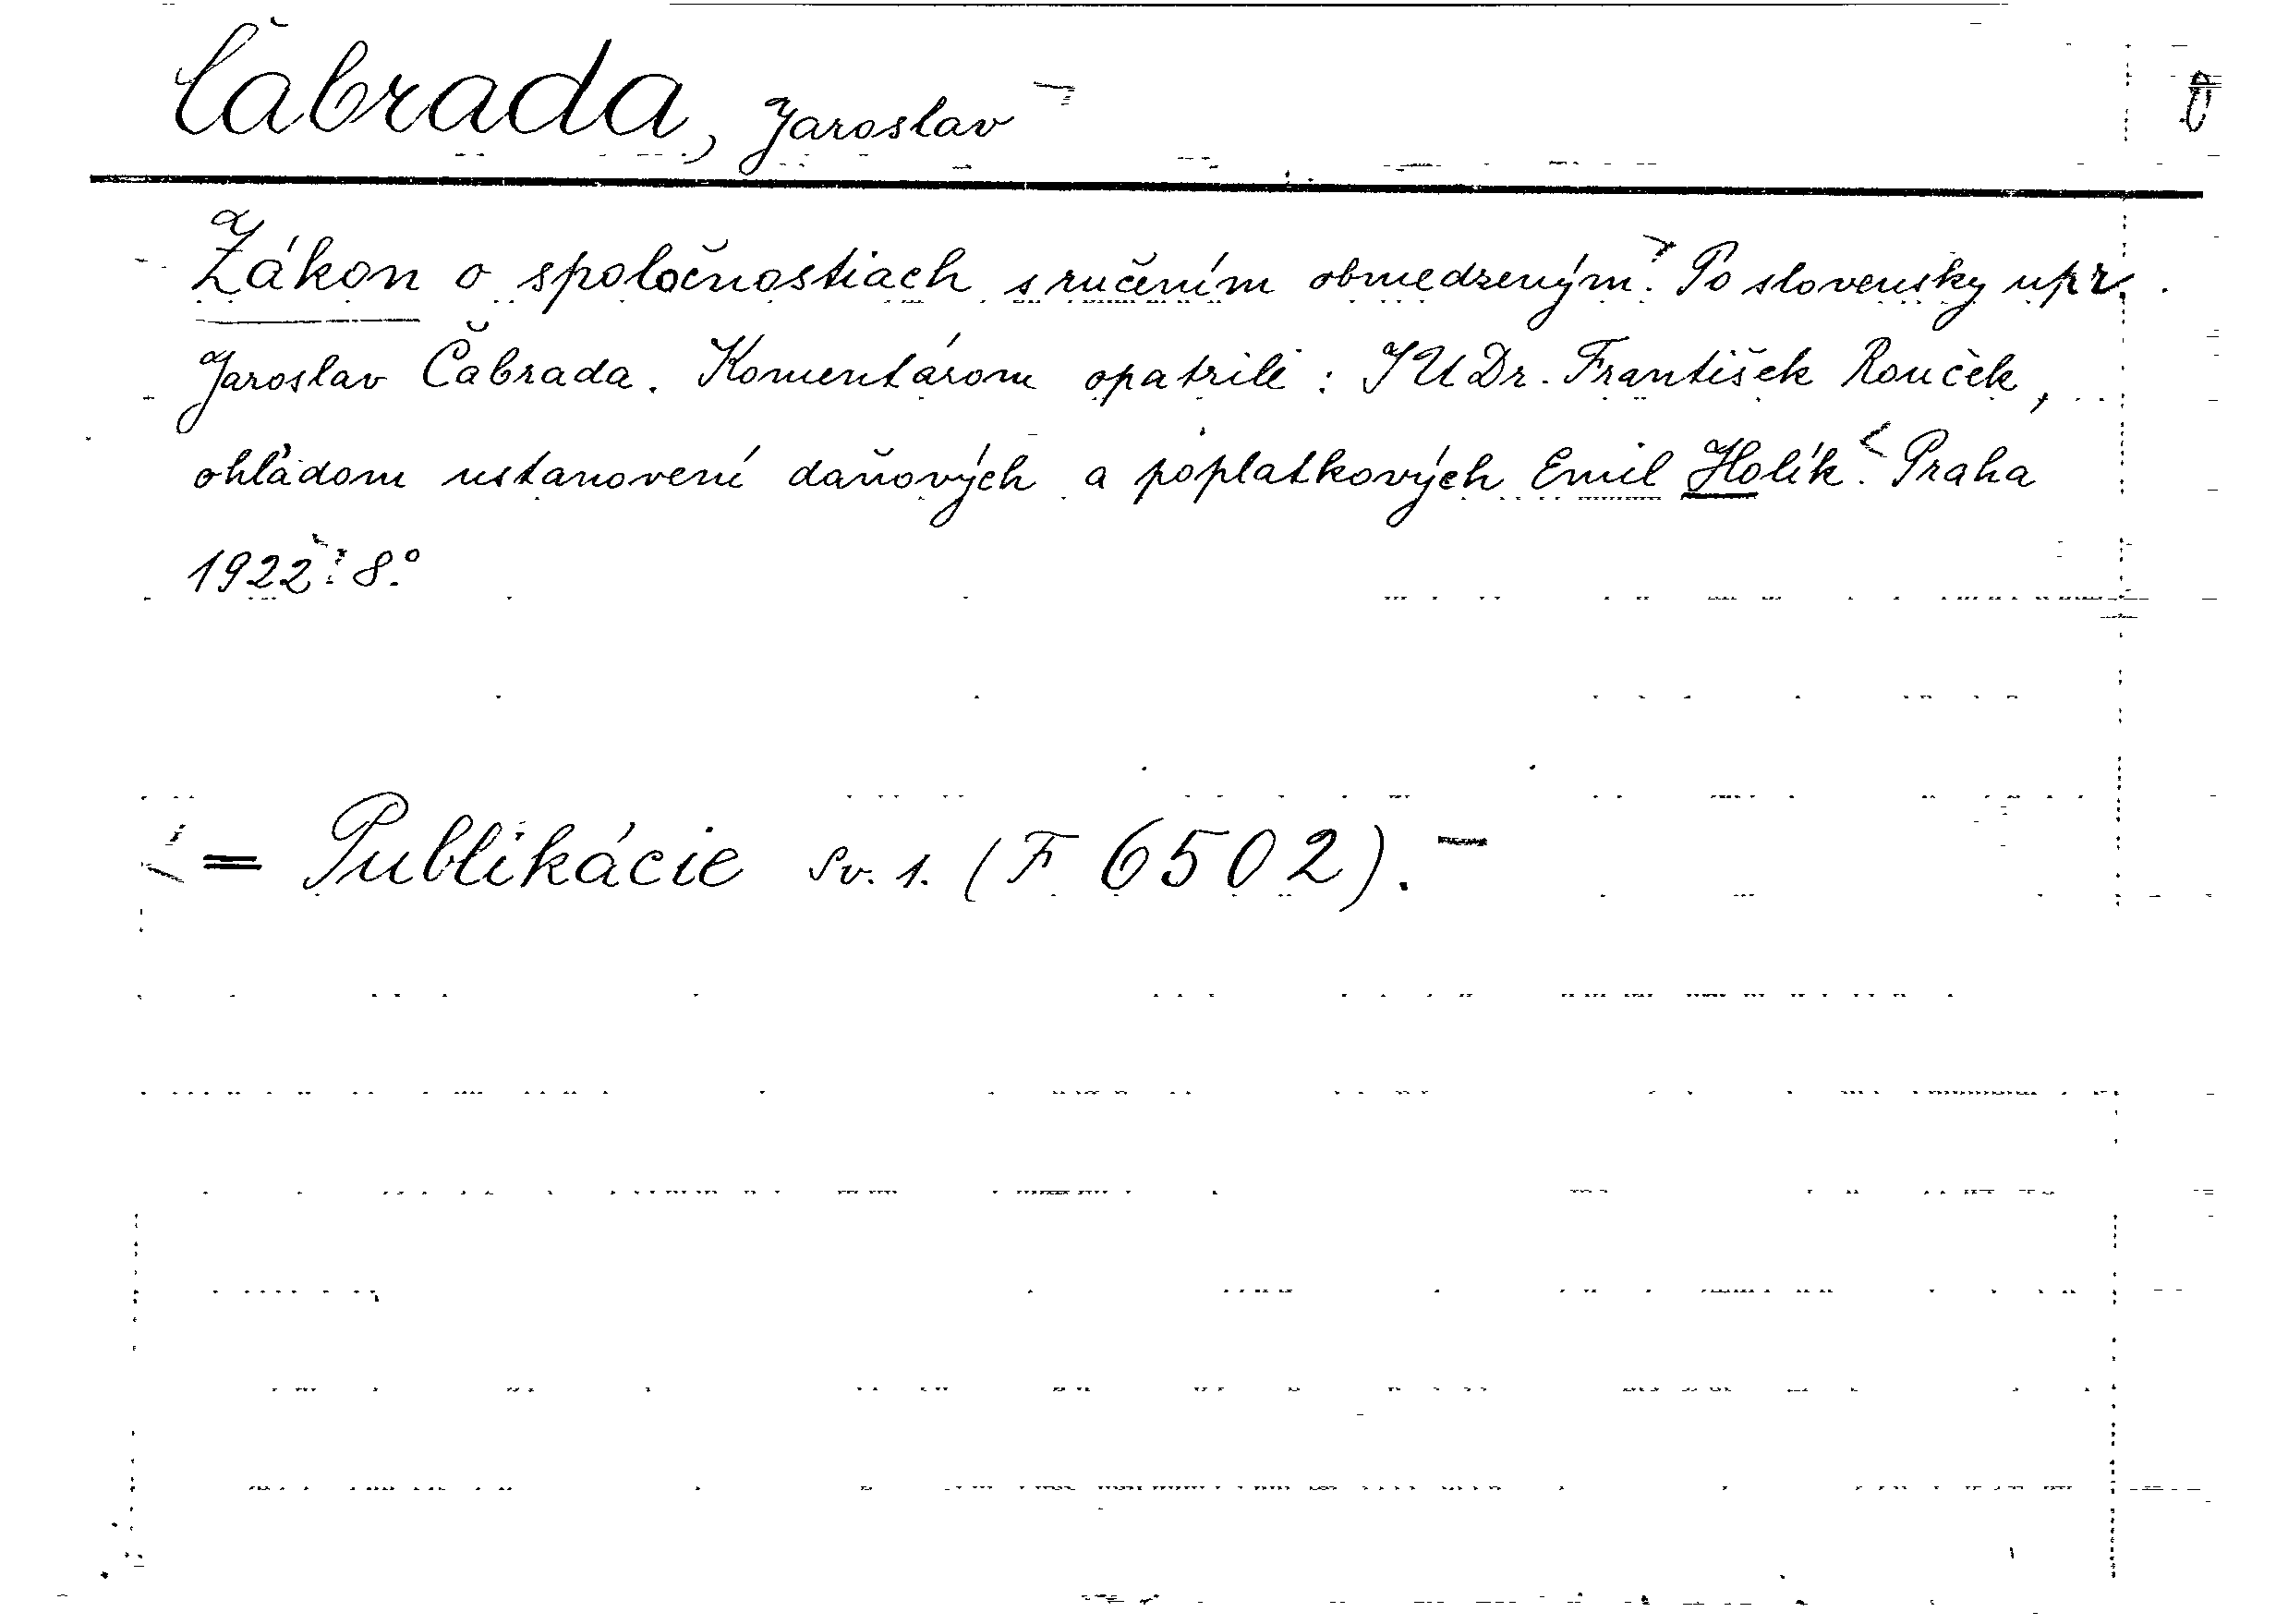 Čabrada, Jaroslav
Zákon o spoločnostiach s ručením obmedzeným. Po slovensky upr.
Jaroslav Čabrada. Komentárom opatrili: JUDr. František Rouček,
ohľadom ustanovení daňových a poplatkových Emil Holík. Praha
1922. 8°.
= Publikácie Sv. 1. (F 6502). –